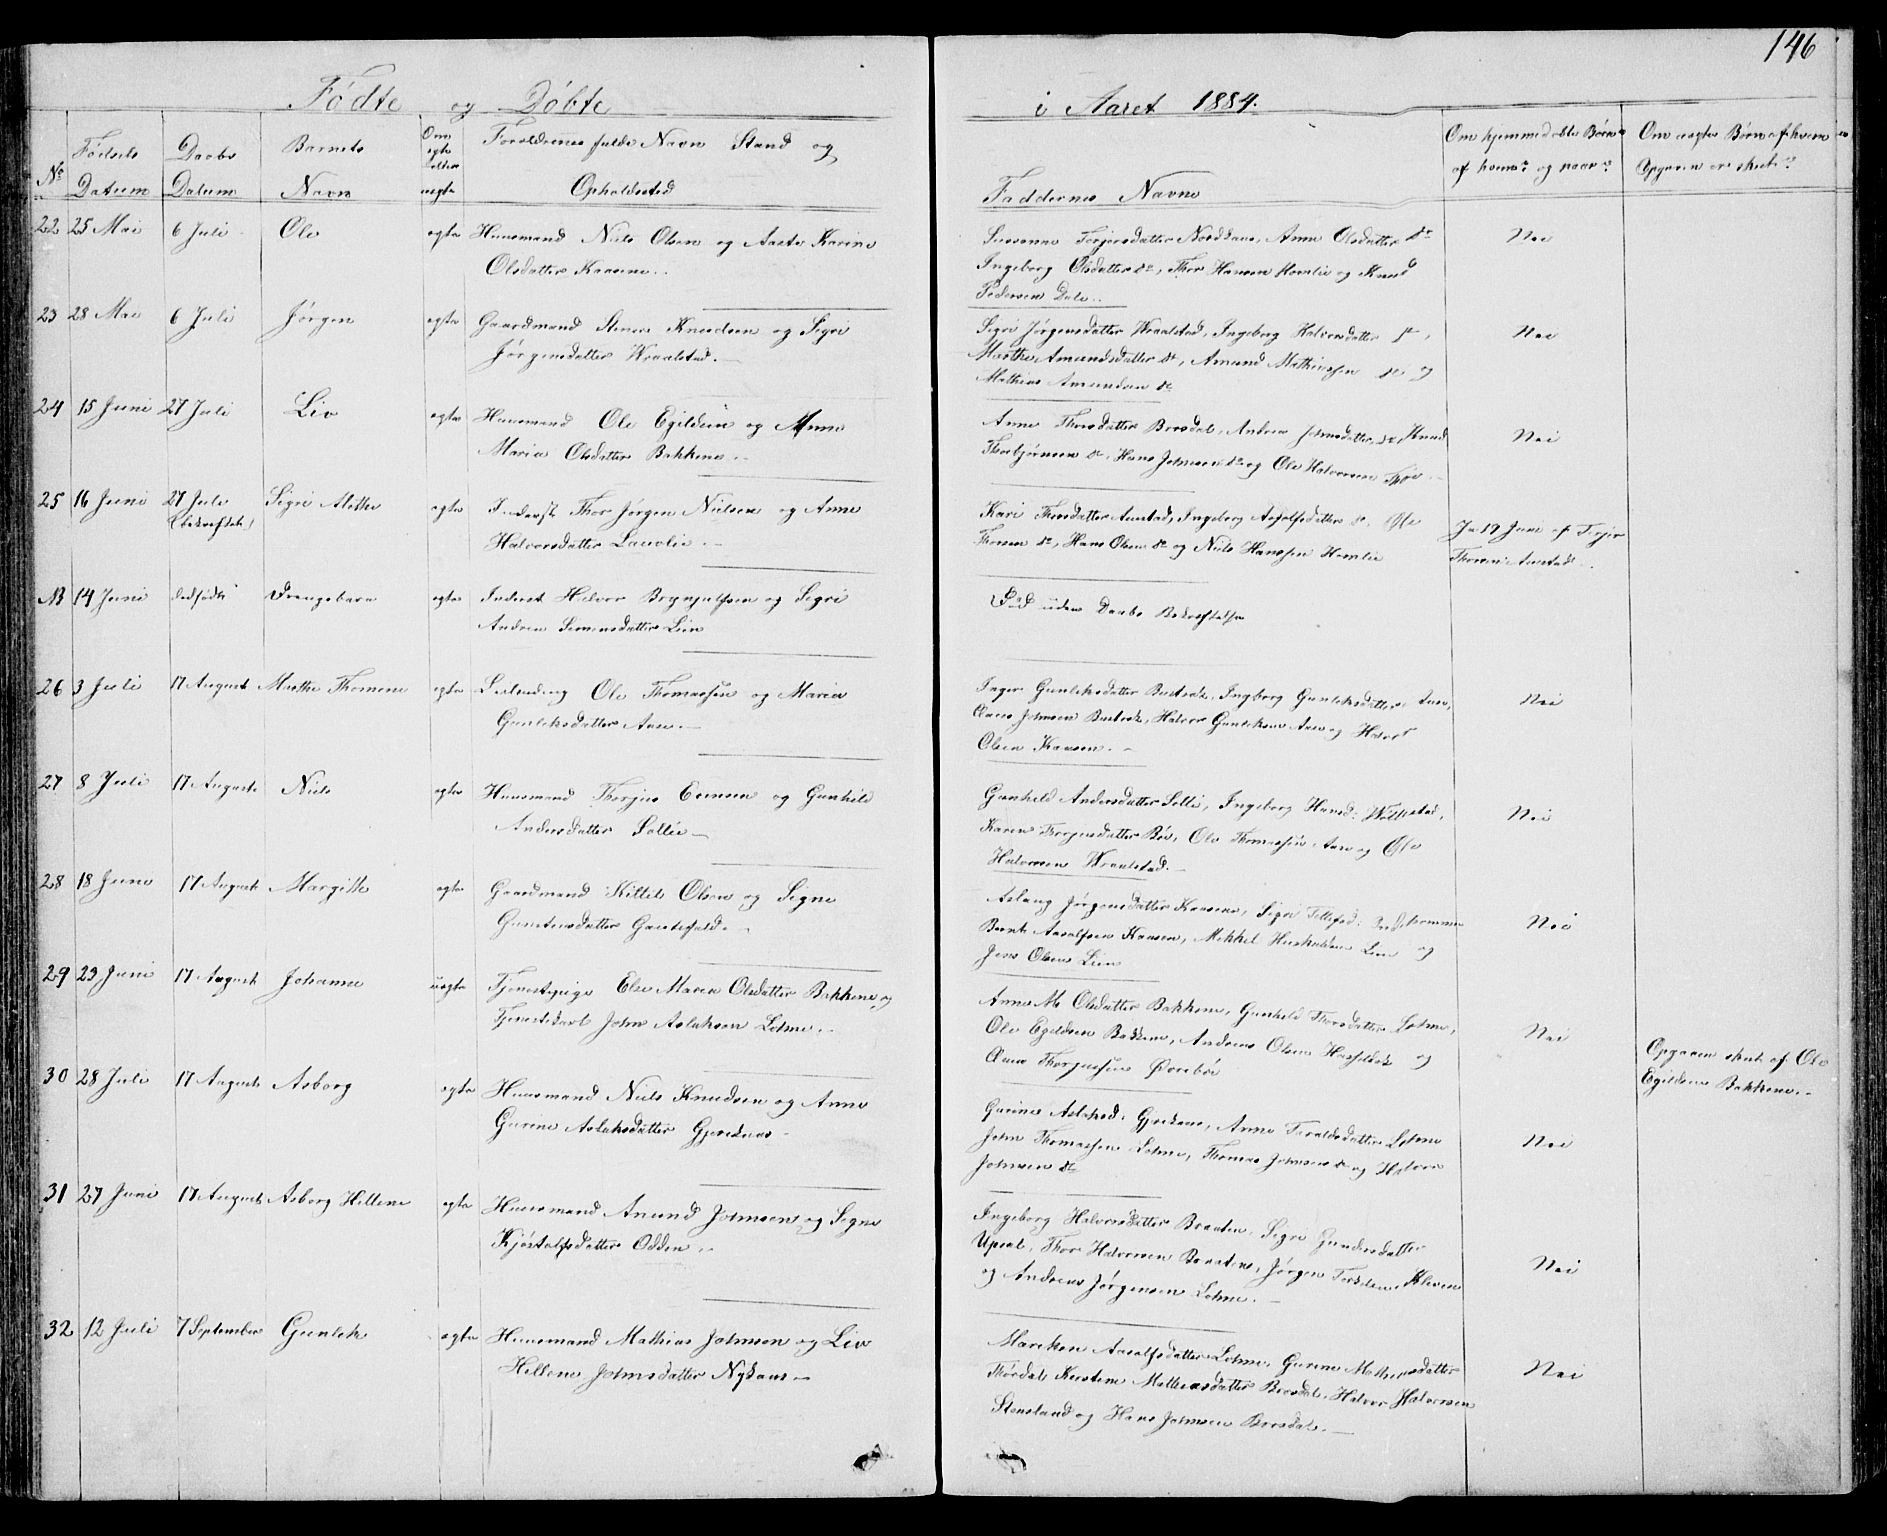 146
Fødte og Døbte i Aaret 1884.
No Fødsels Datum
Daabs Datum
Barnets Navn
Om egte eller uegte
Forældrenes fulde Navn Stand og Opholdssted
Faddernes Navne
Om hjemmedøbte Børn af hvem? og naar?
Om uegte Børn af hvem Opgaven er sket?
22 25 Mai 6 Juli Ole egte Huusmand Niels Olsen og Aaste Karine
Olsdatter Kaasene.
Torjersdatter Anne Olsdatter do
Ingeborg Olsdatter do, Thor Hansen Homlie og Knud
Pedersen Dale.
Nei
23 28 Mai 6 Juli Jørgen egte Gaardmand Knudsen og Sigri
Jørgensdatter Wraalstad.
Sigri Jørgensdatter Wraalstad, Ingeborg Halvorsdatter do,
Marthe Amundsdatter do, Amund Mathiassen do og
Mathias Amundsen do
Nei
24 15 Juni 27 Juli Liv egte Huusmand Ole Egildsen og Anne
Maria Olsdatter Bakkene.
Anne Thorsdatter Brosdal, Andrea Johnsdatter do, Knud
Thorbjørnsen do, Hans Johnsen do og Ole Halvorsen
Nei
25 16 Juni 27 Juli (bekræftet) Sigri Alethe egte Inderst Thor Jørgen Nielsen og Anne
Halvorsdatter
Kari Thorsdatter Aunstad, Ingeborg do, Ole
Thorsen do, Hans Olsen do og Niels Hanssen Homlie
Ja 19 Juni af Terjer
Thorsen Aunstad.
NB 14 Juni dødfødt Drengebarn egte Inderst Halvor Brynjulfsen og Sigri
Andrea Simonsdatter Lien
Død uden Daabs Bekræftelse
26 3 Juli 17 August Marthe Thomine egte Leilænding Ole Thomassen og Maria
Gunleksdatter Aase.
Inger Gunleksdatter Ingborg Gunleksdatter Aase,
Johnsen Halvor Gunleksen Aase og Halvor
Olsen Kaasen.
Nei
27 8 Juli 17 August Niels egte Huusmand Evensen og Gunhild
Andersdatter Sollie
Gunhild Andersdatter Sollie, Ingeborg
Karen Ole Thomassen Aase og Ole
Halvorsen Wraalstad.
Nei
28 18 Juni 17 August Margitte egte Gaardmand Kittil Olsen og Signe
Gunstensdatter Gautefald.
Aslaug Jørgensdatter Kaasene, Sigri
Bernt Aasolfsen Kaasen, Mikkel Lien og
Jens Olsen Lien
Nei
29 23 Juni 17 August Johanne uegte Tjenestepige Else Maren Olsdatter Bakkene og
Tjenestekarl John Aslaksen Lohne.
Anne M Olsdatter Bakkene, Gunhild Thorsdatter Lohne,
Ole Egildsen Bakkene, Andreas Olsen og
Nei
Opgaven sket af Ole
Egildsen Bakkene.
30 28 Juli 17 August Asborg egte Huusmand Niels Knudsen og Anne
Gurine Aslaksdatter
Gurine Anne Taraldsdatter Lohne
John Thomassen Lohne, Thomas Johnsen do og Halvor
Johnsen do
Nei
31 27 Juni 17 August Asborg Hellene egte Huusmand Anund Johnsen og Signe
Kjøstolfsdatter Odden.
Ingeborg Halvorsdatter Braaten, Sigri Gundersdatter
Thor Halvorsen Braaten, Jørgen Kleven
og Andreas Jørgensen Lohne.
Nei
32 12 Juli 7 September Gunlek egte Huusmand Mathias Johnsen og Liv
Hellene Johnsdatter
Mareken Aasolfsdatter Lohne, Gurine Mathiasdatter
Kirstine Mathiasdatter Brosdal, Halvor Halvorsen
Stensland og Hans Johnsen Brosdal.
Nei